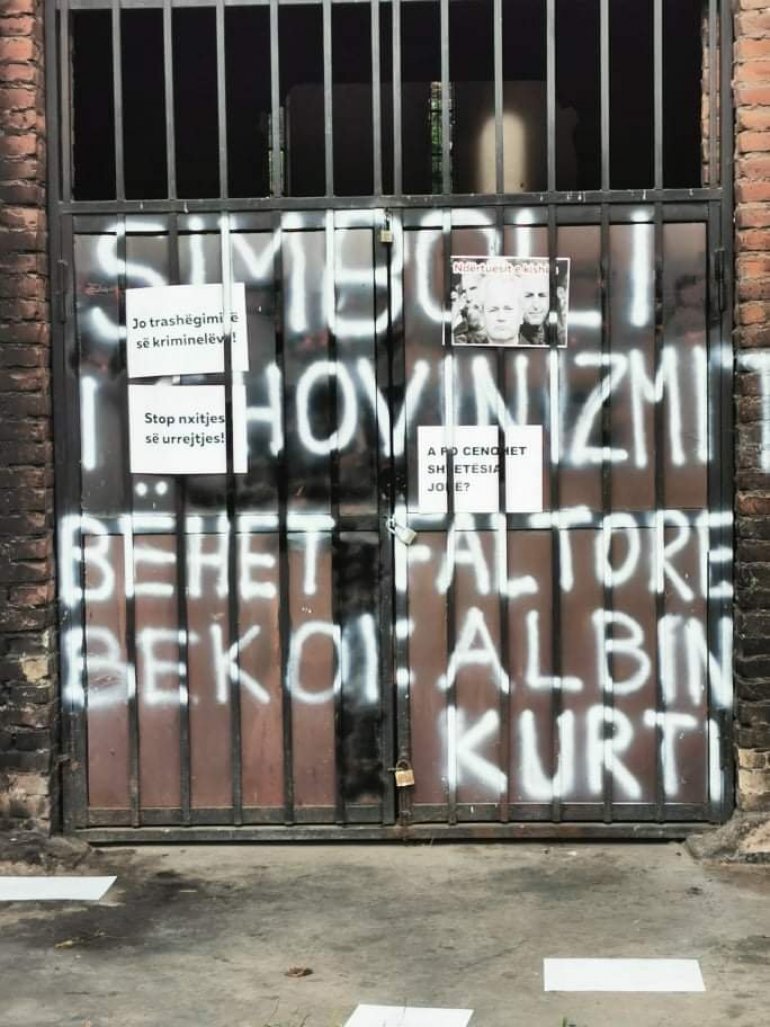 SIMBOLI
I SHOVINIZMIT
BËHET FALTORE
BEKOI ALBIN
KURTI
Jo trashëgimisë
së kriminelëve!
Stop nxitjes
së urrejtjes!
Ndërtuesit e kishës
A PO CENOHET
SHTETËSIA
JONË?